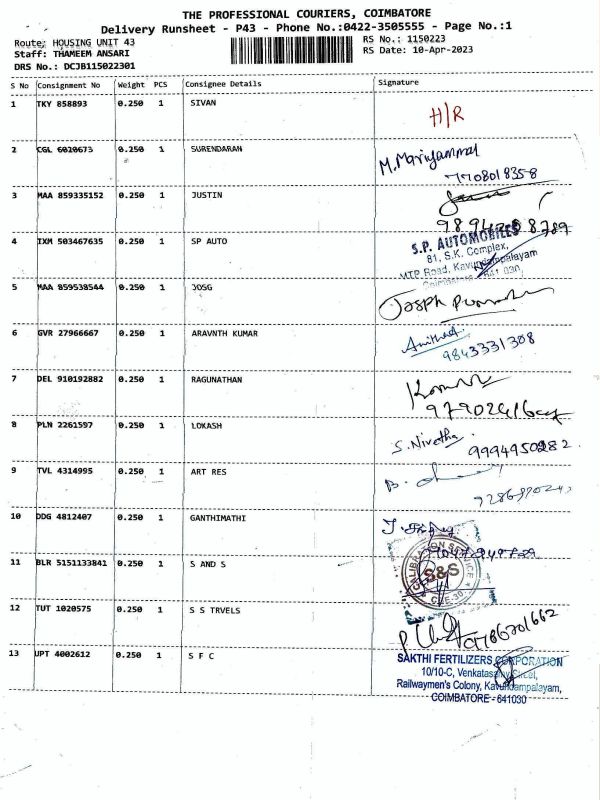 THE PROFESSIONAL COURIERS, COIMBATORE
Delivery Runsheet - P43 - Phone No.:0422-3505555 - Page No.:1
Route: HOUSING UNIT 43
RS No.: 1150223
Staff: THAMEEM ANSARI
RS Date: 10-Apr-2023
DRS No.: DCJB115022301
S No Consignment No Weight PCS Consignee Details Signature
1 TKY 858893 0.250 1 SIVAN H/R
2 CGL 6020673 0.250 1 SURENDARAN M. Mariyammal
7708018358
3 MAA 859335152 0.250 1 JUSTIN
4 IXM 503467635 0.250 1 SP AUTO S.P. AUTOMOBILES
81, S.K. Complex,
MTP Road, Kavundampalayam
5 MAA 859538544 0.250 1 JOSG Joseph
6 GVR 27966667 0.250 1 ARAVNTH KUMAR
9843331308
7 DEL 910192882 0.250 1 RAGUNATHAN
8 PLN 2261597 0.250 1 LOKASH S. Nivetha
9994950282
9 TVL 4314995 0.250 1 ART RES
10 DDG 4812407 0.250 1 GANTHIMATHI
11 BLR 5151133841 0.250 1 S AND S CALIBRATION SERVICE
S&S
12 TUT 1020575 0.250 1 S S TRVELS
13 UPT 4002612 0.250 1 S F C SAKTHI FERTILIZERS CORPORATION
10/10-C, Venkatasamy Street,
Railwaymen's Colony, Kavundampalayam,
COIMBATORE - 641030